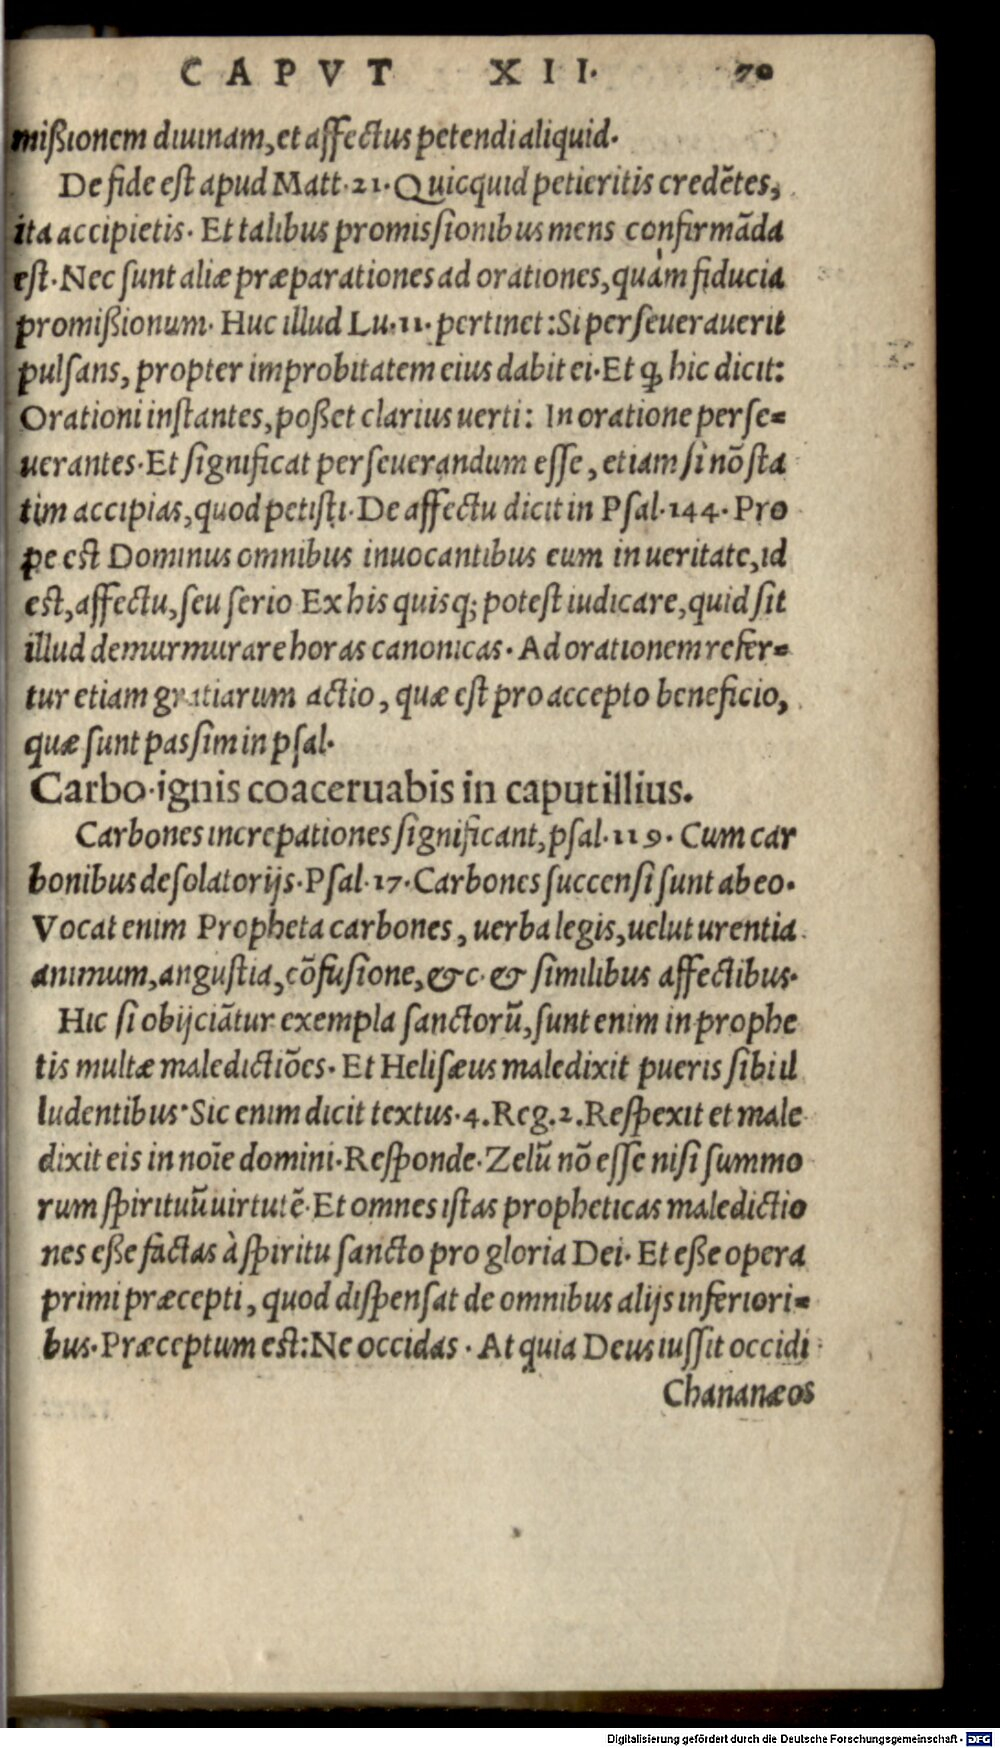 CAPVT XII. 70
mißionem diuinam, et affectus petendi aliquid.
De fide est apud Matt. 21. Quicquid petieritis credētes,
ita accipietis. Et talibus promissionibus mens confirmāda
est. Nec sunt aliæ præparationes ad orationes, quàm fiducia
promißionum. Huc illud Lu. 11. pertinet: Si perseuerauerit
pulsans, propter improbitatem eius dabit ei. Et ꝙ hic dicit:
Orationi instantes, poßet clarius uerti: In oratione perse=
uerantes. Et significat perseuerandum esse, etiam si nō sta
tim accipias, quod petisti. De affectu dicit in Psal. 144. Pro
pe est Dominus omnibus inuocantibus eum in ueritate, id
est, affectu, seu serio Ex his quisq; potest iudicare, quid sit
illud demurmurare horas canonicas. Ad orationem refer=
tur etiam gratiarum actio, quæ est pro accepto beneficio,
quæ sunt passim in psal.
Carbo.ignis coaceruabis in caput illius.
Carbones increpationes significant, psal. 119. Cum car
bonibus desolatorijs. Psal. 17. Carbones succensi sunt ab eo.
Vocat enim Propheta carbones, uerba legis, uelut urentia
animum, angustia, cōfusione, &c. & similibus affectibus.
Hic si obijciātur exempla sanctorū, sunt enim in prophe
tis multæ maledictiōes. Et Helisæus maledixit pueris sibi il
ludentibus. Sic enim dicit textus. 4. Reg. 2. Respexit et male
dixit eis in noīe domini. Responde. Zelū nō esse nisi summo
rum spirituū uirtutē. Et omnes istas propheticas maledictio
nes eße factas à spiritu sancto pro gloria Dei. Et eße opera
primi præcepti, quod dispensat de omnibus alijs inferiori=
bus. Præceptum est: Ne occidas. At quia Deus iussit occidi
Chananæos
Digitalisierung gefördert durch die Deutsche Forschungsgemeinschaft - DFG